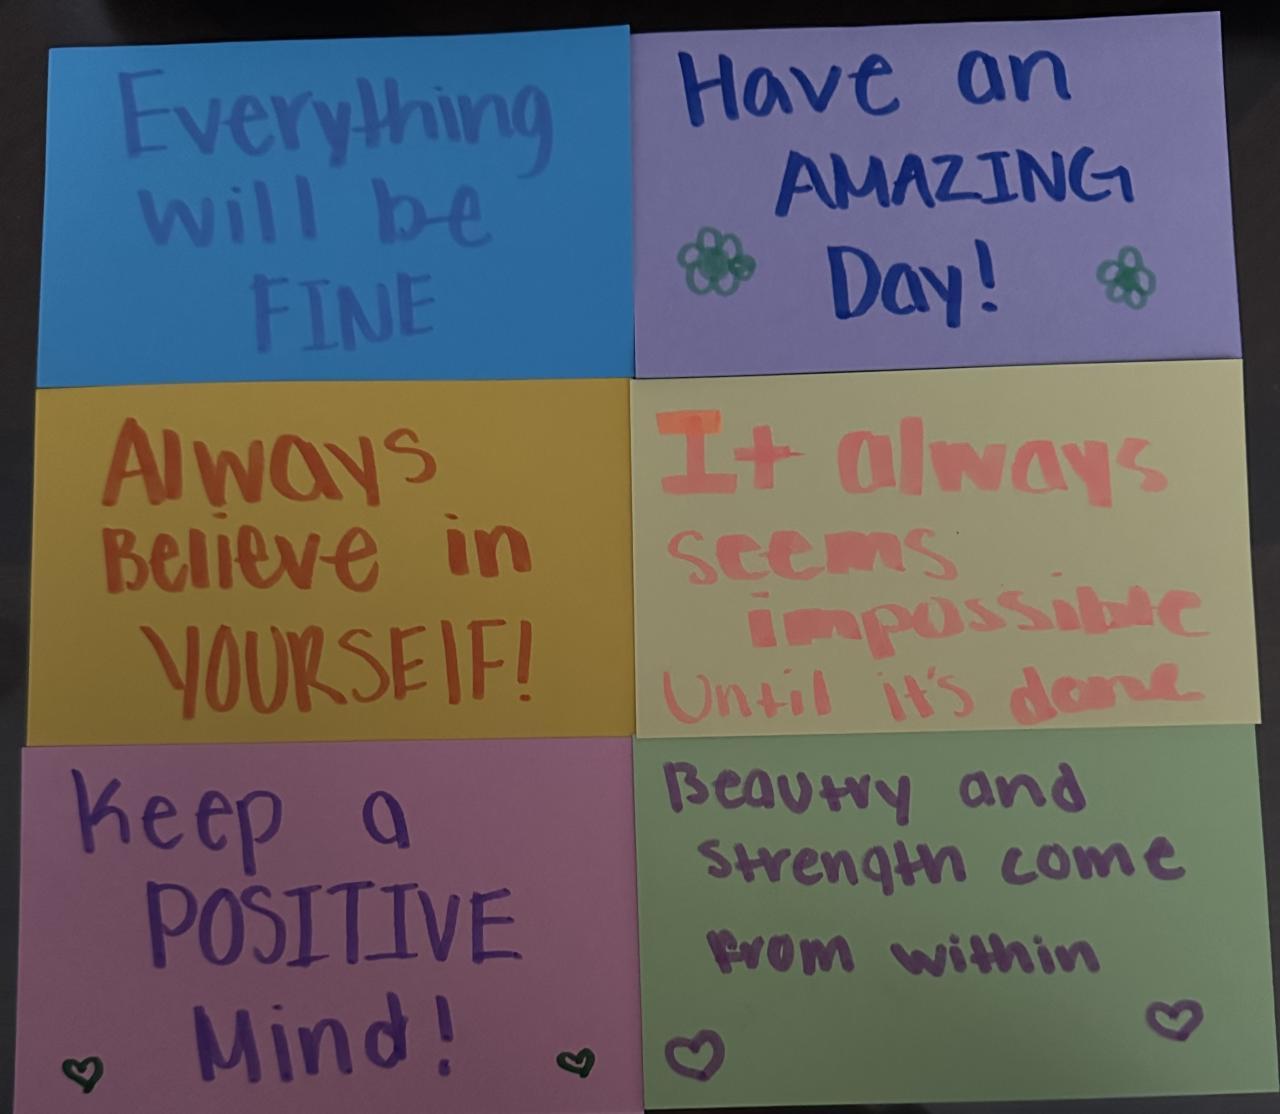 Everything
will be
FINE
Have an
AMAZING
Day!
Always
Believe in
YOURSELF!
It always
seems
impossible
Until it's done
Keep a
POSITIVE
Mind!
Beautry and
strength come
From within